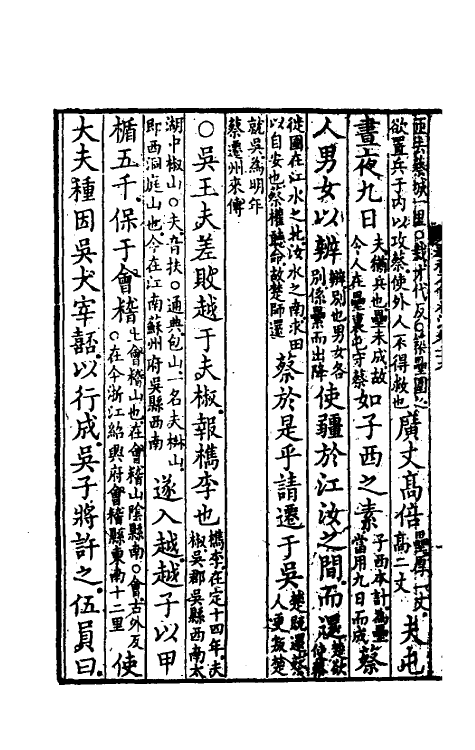 匝去蔡城一里○栽才代反○設壘圍之欲置兵于内以攻蔡使外人不得救也廣丈髙倍壘厚一丈髙二丈夫屯
晝夜九日夫猶兵也壘未成故令人在壘裏屯守蔡如子西之素子西本計為壘當用九日而成蔡
人男女以辨辨别也男女各别係纍而出降使疆於江汝之間而還楚欲使蔡
徙國在江水之北汝水之南求田以自安也蔡權聽命故楚師還蔡於是乎請遷于吳楚既還蔡人更叛楚
就吳為明年蔡遷州來傳
○吳王夫差敗越于夫椒報檇李也檇李在定十四年夫椒吳郡吳縣西南太
湖中椒山○夫音扶○通典包山一名夫椒山即西洞庭山也今在江南蘇州府吳縣西南遂入越越子以甲
楯五千保于會稽上會稽山也在會稽山隂縣南○會古外反○在今浙江紹興府會稽縣東南十二里使
大夫種因吳大宰嚭以行成吳子將許之伍員曰